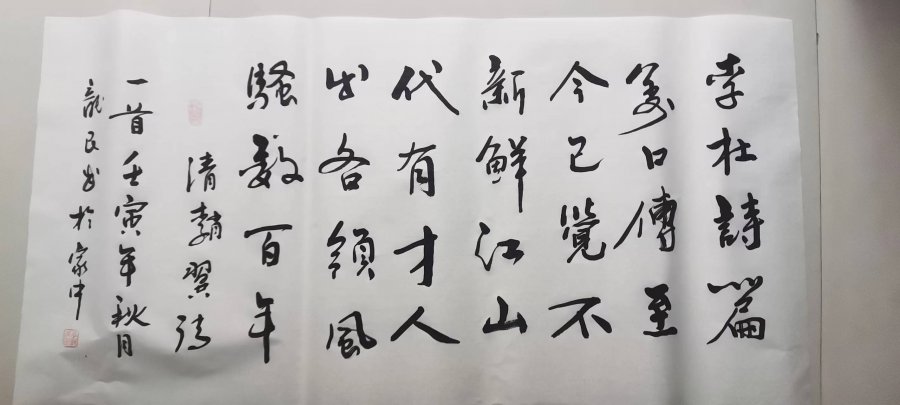 李杜詩篇
萬口傳至
今已覺不
新鮮江山
代有才人
出各領風
騷數百年
清趙翼詩
一首壬寅年秋月
龍民书於家中